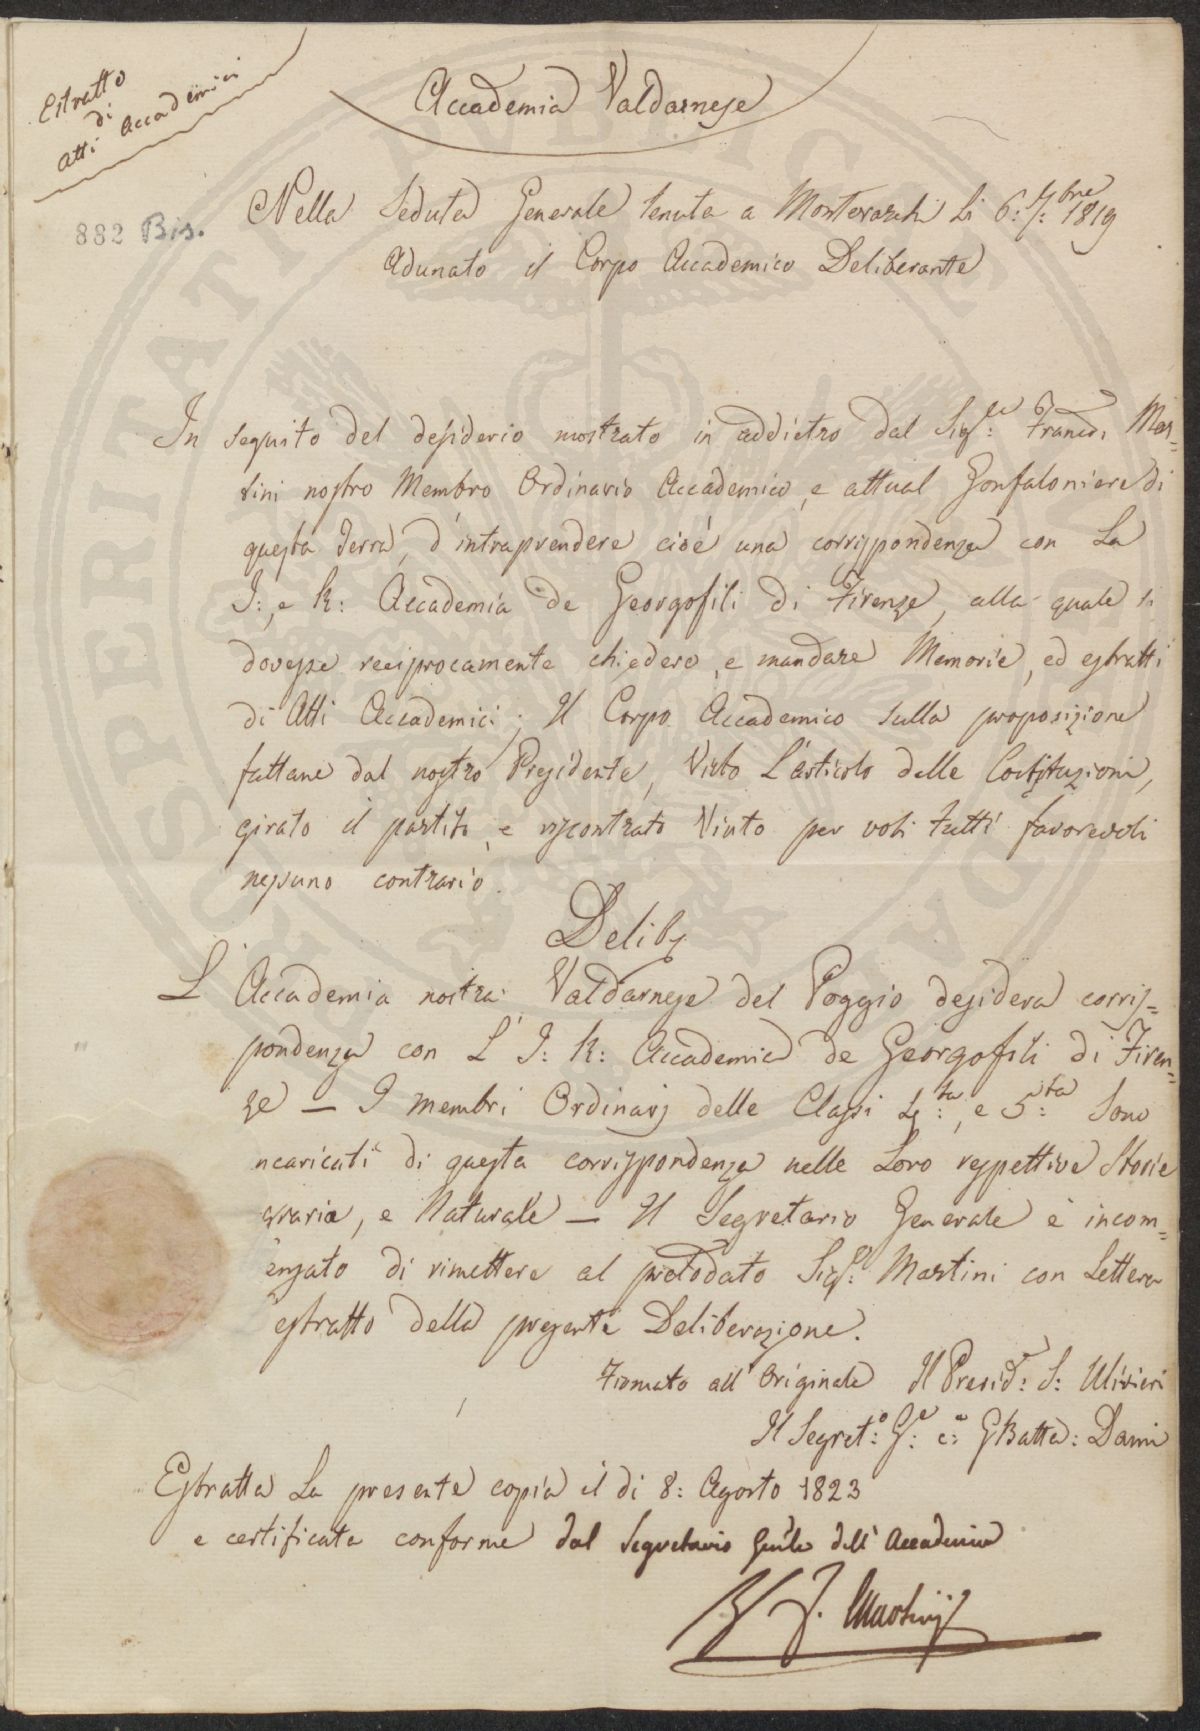 Estratto
di
Atti Accademici
Accademia Valdarnese
882 Bis.
Nella Seduta Generale tenuta a Montevarchi Li 6: 7:bre 1819
Adunato il Corpo Accademico Deliberante
In seguito del desiderio mostrato in addietro dal Sig:re Franco: Mar=
tini nostro Membro Ordinario Accademico, e attual Gonfaloniere di
questa Terra, d'intraprendere cioè una corrispondenza con La
I:, e R: Accademia de Georgofili di Firenze, alla quale si
dovesse reciprocamente chiedere, e mandare Memorie, ed estratti
di Atti Accademici; Il Corpo Accademico sulla proposizione
fattane dal nostro Presidente, Visto L'articolo delle Costituzioni,
girato il partito, e riscontrato Vinto per voti tutti favorevoli
nessuno contrario.
Delib
L'Accademia nostra Valdarnese del Poggio desidera corris=
pondenza con L'I: R: Accademia de Georgofili di Firen=
ze — I membri Ordinarj delle Classi 4:ta, e 5:ta Sono
ncaricati di questa corrispondenza nelle Loro respettive Storie
graria, e Naturale — Il Segretario Generale è incom=
enzato di rimettere al prelodato Sig:e Martini con Lettera
estratto della presente Deliberazione.
Firmato all'Originale Il Presid:e S: Ulivieri
Il Segret:o G:e e:a GBatta: Dami
Estratta La presente copia il di 8: Agosto 1823
e certificata conforme dal Segretario Genle dell'Accademia
F. Martinj